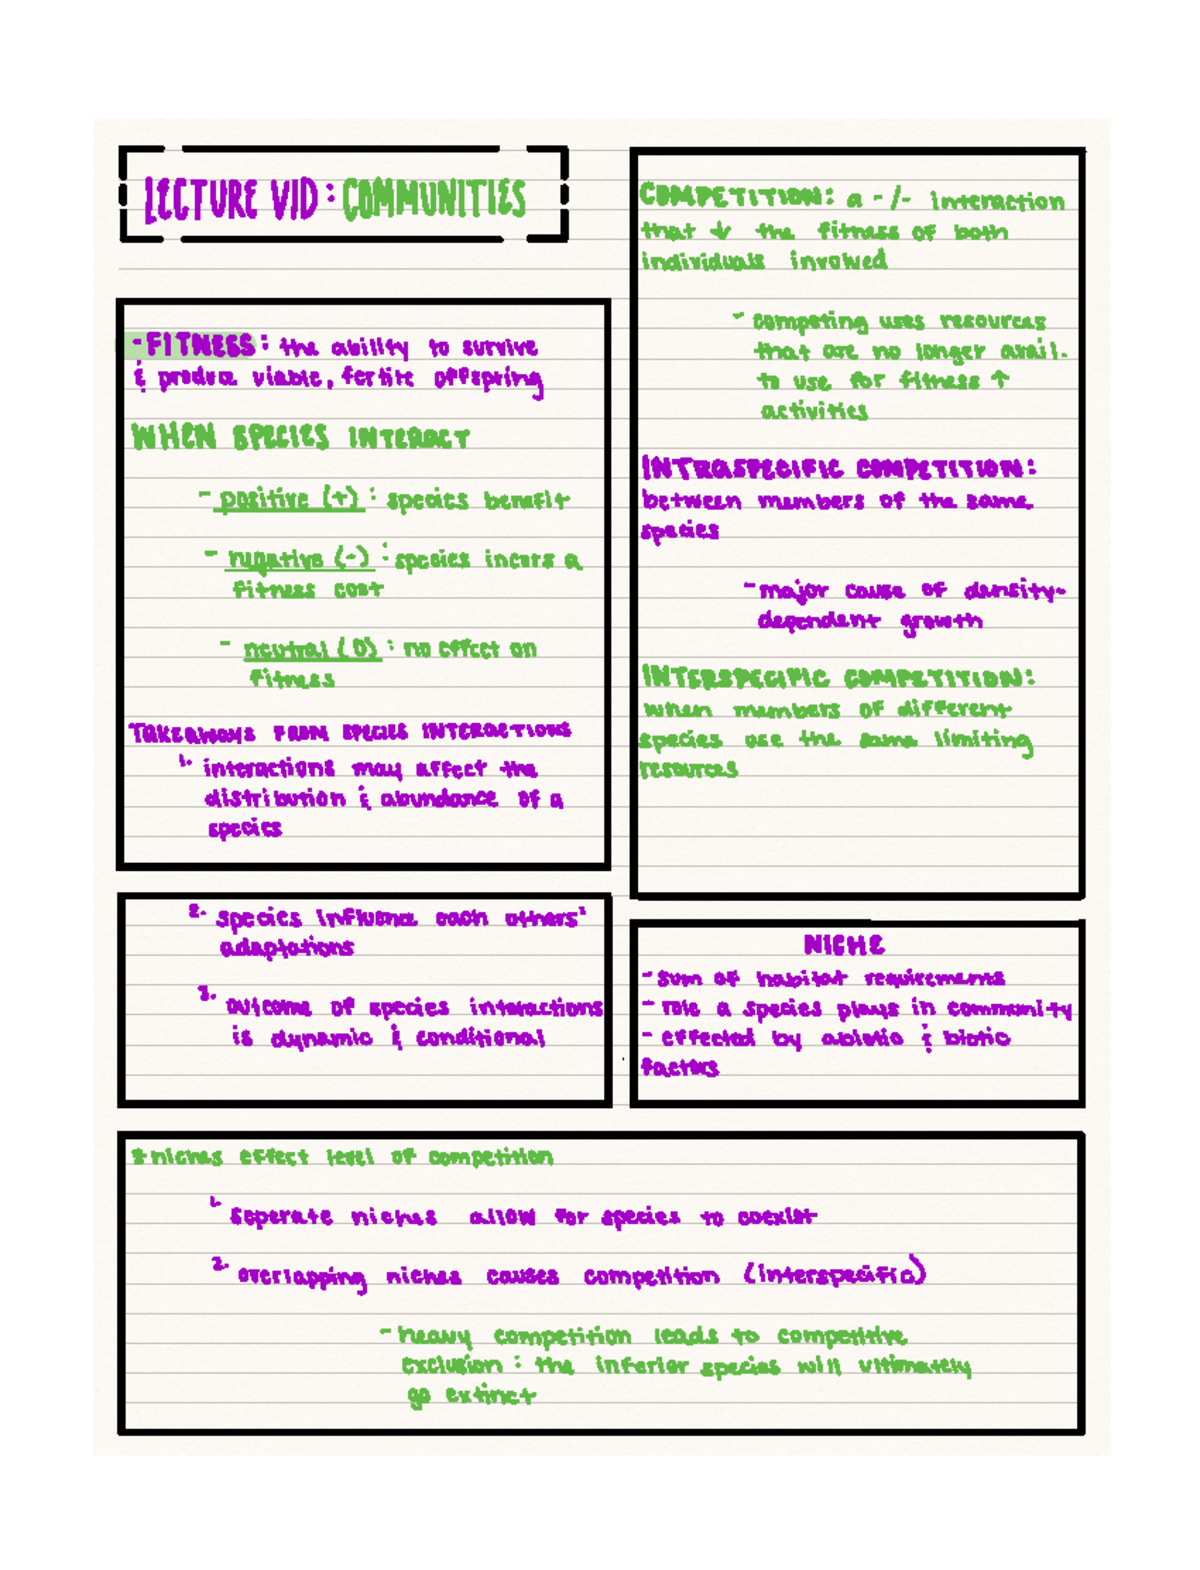 LECTURE VID: COMMUNITIES
- FITNESS: the ability to survive
& produce viable, fertile offspring
WHEN SPECIES INTERACT
- positive (+): species benefit
- negative (-): species incurs a
fitness cost
- neutral (0): no effect on
fitness
TAKEAWAYS FROM SPECIES INTERACTIONS
1. interactions may affect the
distribution & abundance of a
species
2. species influence each others'
adaptations
3. outcome of species interactions
is dynamic & conditional
COMPETITION: a -/- interaction
that ↓ the fitness of both
individuals involved
- competing uses resources
that are no longer avail.
to use for fitness ↑
activities
INTRASPECIFIC COMPETITION:
between members of the same
species
- major cause of density-
dependent growth
INTERSPECIFIC COMPETITION:
when members of different
species use the same limiting
resources
NICHE
- sum of habitat requirements
- role a species plays in community
- effected by abiotic & biotic
factors
* niches effect level of competition
1. seperate niches allow for species to coexist
2. overlapping niches causes competition (interspecific)
- heavy competition leads to competitive
exclusion: the inferior species will ultimately
go extinct